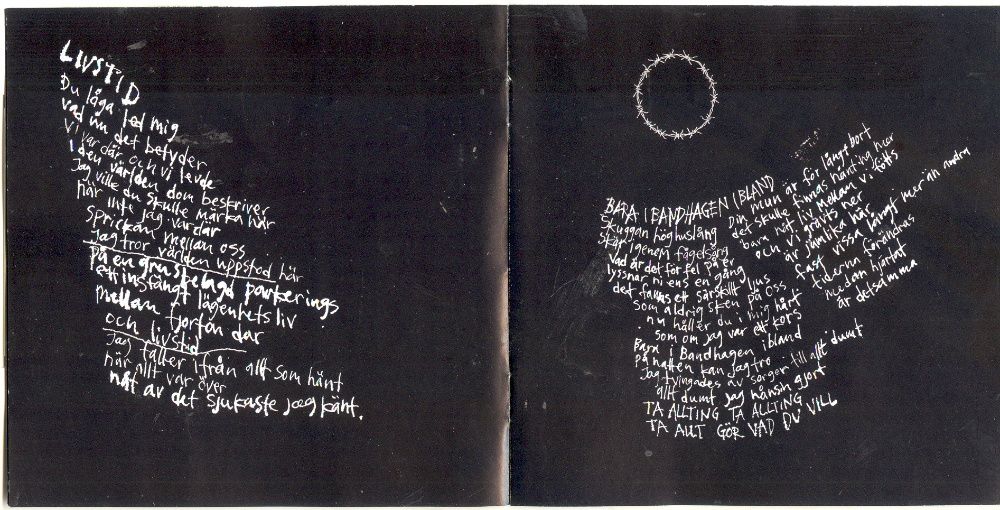 LIVSTID
Du låga led mig
vad nu det betyder
Vi var där och vi levde
i den världen dom beskriver
Jag ville du skulle märka när
när inte jag var där
Sprickan mellan oss
Jag tror världen uppstod här
på en gruskelagd parkerings
ett instängt lägenhetsliv
mellan fjorton dar
och livstid
Jag faller ifrån allt som hänt
när allt var över
nåt av det sjukaste jag känt.
BARA I BANDHAGEN IBLAND
Skuggan höghuslång
skär igenom fågelsång
vad är det för fel på er
lyssnar ni ens en gång
det fanns ett särskilt ljus
som aldrig sken på oss
nu håller du i mig hårt
som om jag var ett kors
Bara i Bandhagen ibland
på natten kan jag tro
Jag tvingades av sorger till allt dumt
allt dumt jag nånsin gjort
TA ALLTING TA ALLTING
TA ALLT GÖR VAD DU VILL
Din mun är för långt bort
det skulle finnas nånting här
bara nåt, liv mellan vi fötts
och vi grävts ner
är jämlika här
fast vissa långt mer än andra
tiderna förändras
medan hjärtat
är detsamma